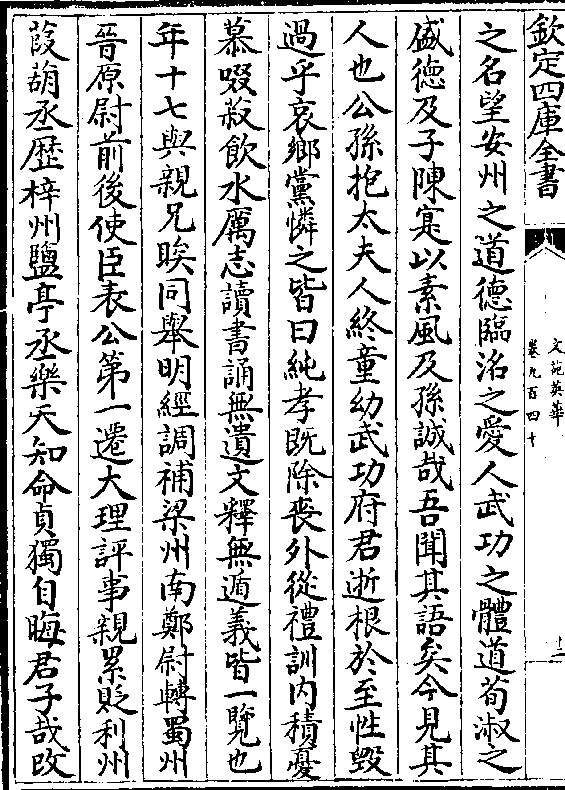 欽定四庫全書
文苑英華
卷九百四十
十二
之名望安州之道德臨洺之愛人武功之體道荀淑之
盛德及子陳寔以素風及孫誠哉吾聞其語矣今見其
人也公孫抱太夫人終童幼武功府君逝根於至性毀
過乎哀鄉黨憐之皆曰純孝既除喪外從禮訓内積憂
慕啜菽飲水厲志讀書誦無遺文釋無遁義皆一覽也
年十七與親兄㬇同舉明經調補梁州南鄭尉轉蜀州
晉原尉前後使臣表公第一遷大理評事親累貶利州
葭萌丞歴梓州鹽亭丞樂天知命貞獨自晦君子哉改